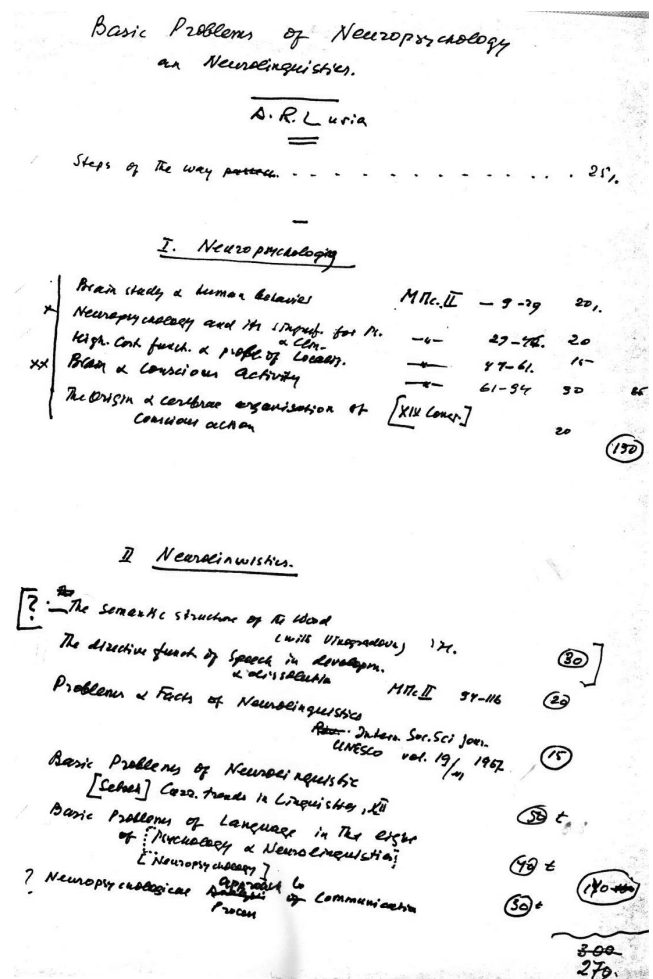 Basic Problems of Neuropsychology
an Neurolinguistics.
A.R. Luria
Steps of the way . . . . . . . . . . . . . . 25 p.
I. Neuropsychology
Brain study & human behavior МПс. II – 9-29 20 p.
x Neuropsychology and its signif. for Ps. -"- 29-46. 20
& Clin.
High. Cort. funct. & probl. of Localiz. -"- 47-61. 15
xx Brain & Conscious activity -"- 61-94 30 85
The Origin & cerebrae organisation of [XIX Congr.]
Conscious action 20
150
II Neurolinwistics.
[?. The Semantic structure of the Word
(with Vinogradova) 30]
The directive funct. of Speech in developm.
& dissolution МПс II 94-116 20
Problems & Facts of Neurolinguistics
Intern. Soc. Sci jour.
UNESCO vol. 19/ 1967 15
Basic Problems of Neurolinguistic
[Sebeok] Curr. trends in Linguistics, XII 50 t
Basic Problems of Language in the light
of Psychology & Neurolinguistics
[Neuropsychology] 40 t
? Neuropsychological Approach to of Communication
Process 30 t
140
300
270.